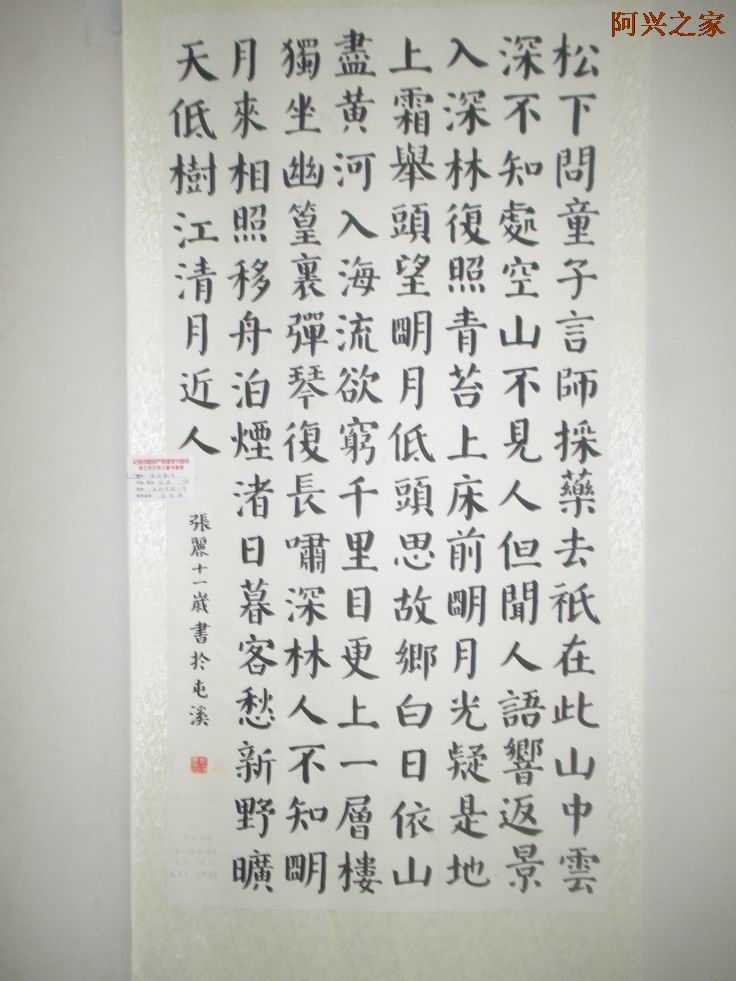 阿兴之家
松下問童子言師採藥去祇在此山中雲
深不知處空山不見人但聞人語響返景
入深林復照青苔上床前朙月光疑是地
上霜舉頭望朙月低頭思故鄉白日依山
盡黄河入海流欲窮千里目更上一層樓
獨坐幽篁裏彈琴復長嘯深林人不知朙
月來相照移舟泊煙渚日暮客愁新野曠
天低樹江清月近人
張麗十一歲書於屯溪